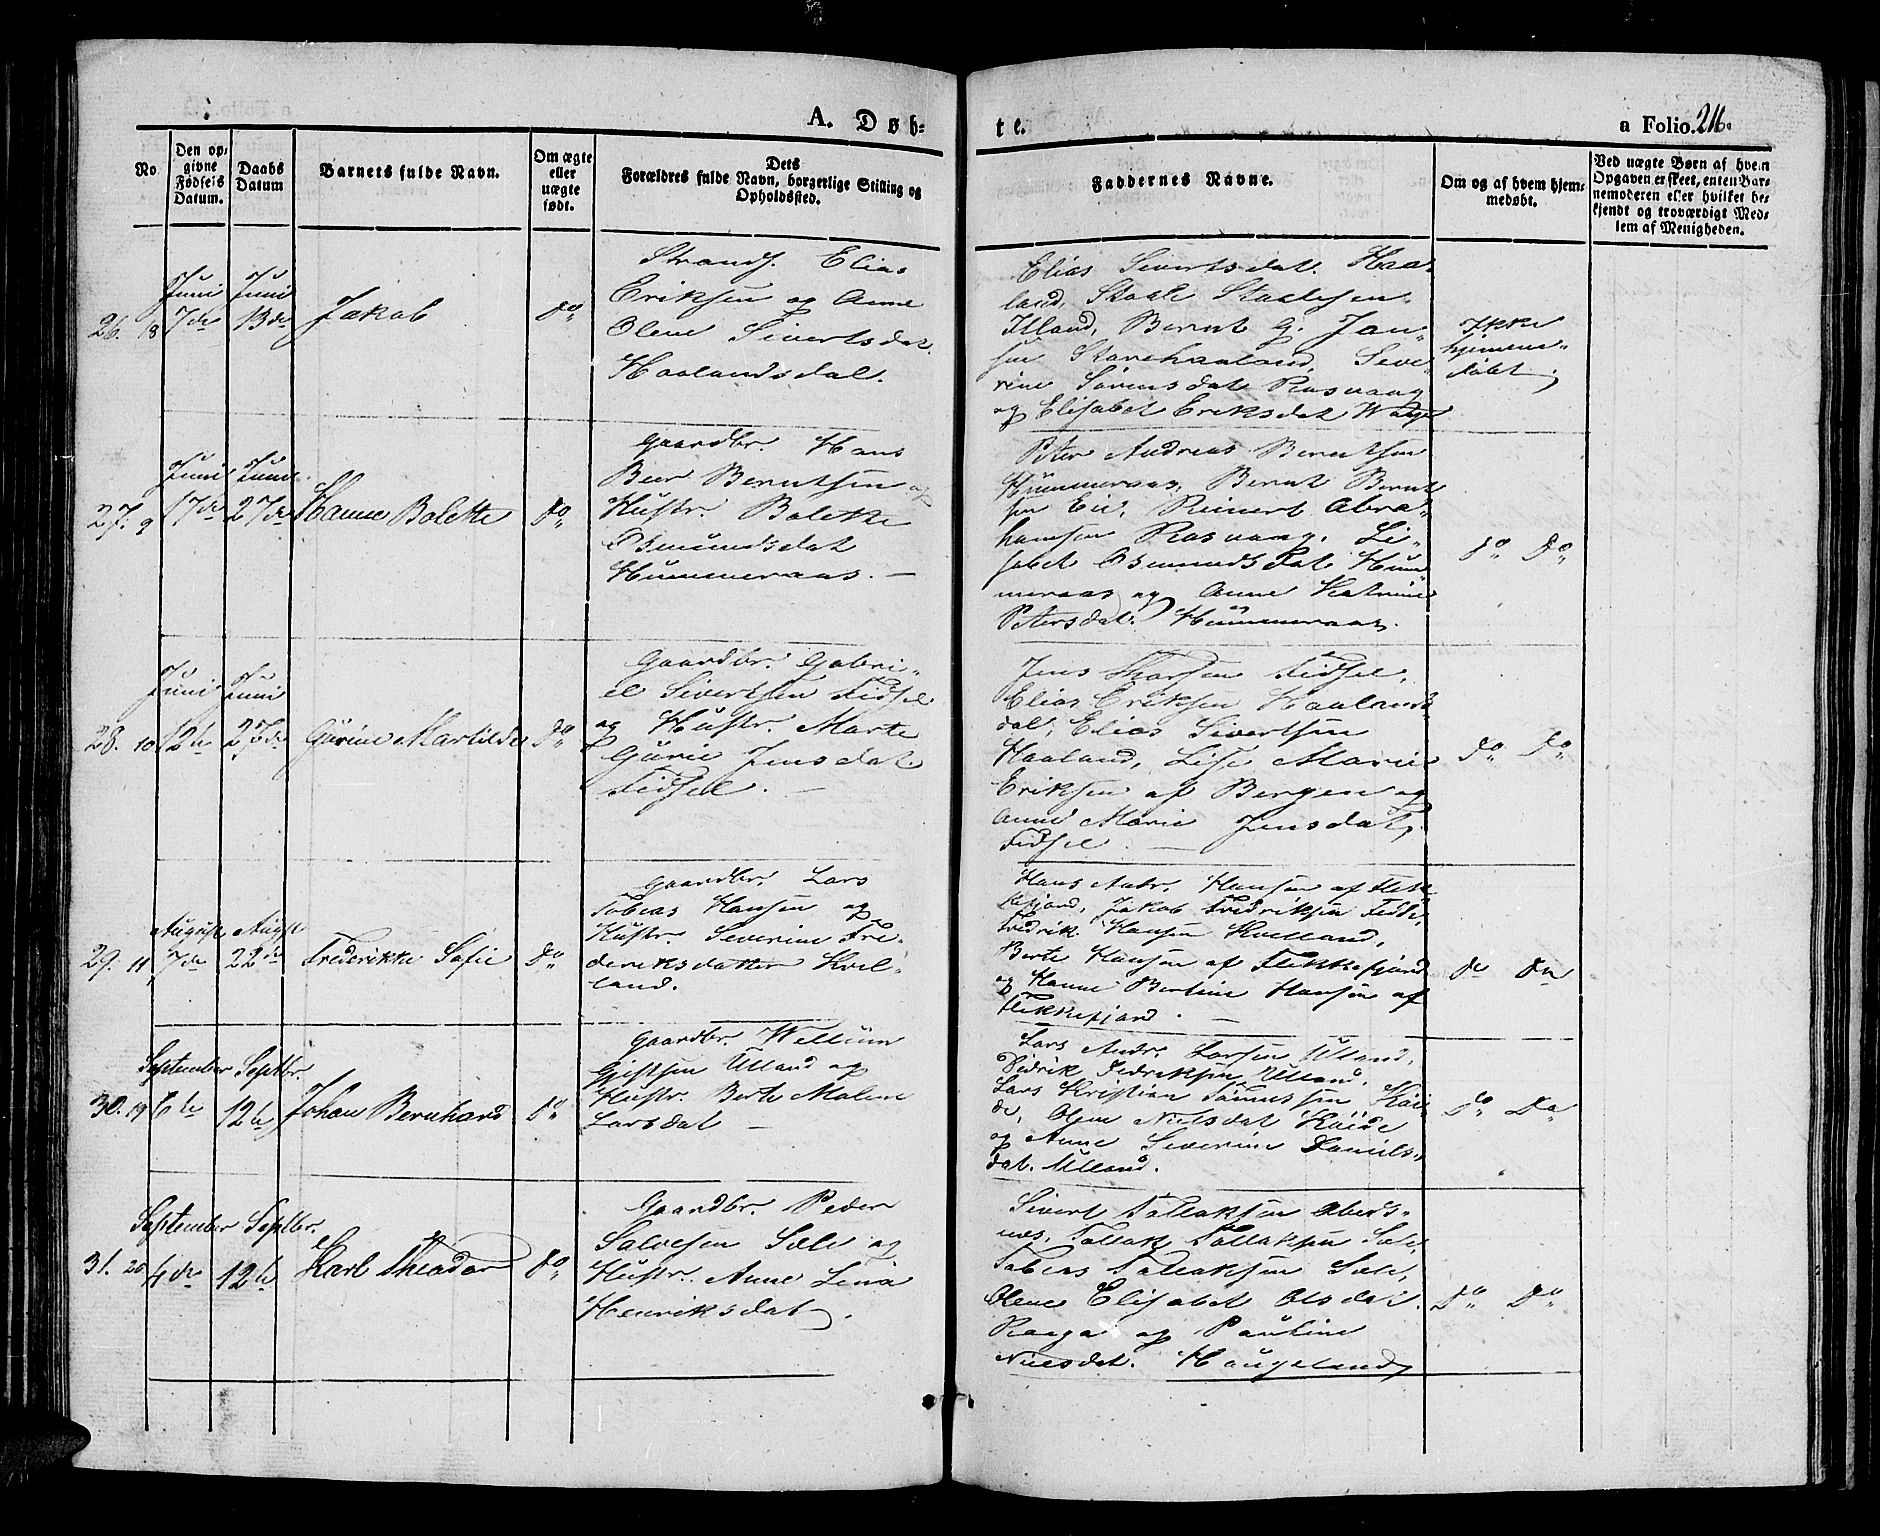 A. Døb-
te.
a Folio. 216.
No
Den op-
givne
Fødsels
Datum.
Daabs
Datum
Barnets fulde Navn.
Om ægte
eller
uægte
født.
Dets
Forældres fulde Navn, borgerlige Stilling og
Opholdssted.
Faddernes Navne.
Om og af hvem hjem-
medøbt.
Ved uægte Børn af hvem
Opgaven er skeet, enten Bar-
nemoderen eller hvilket be-
kjendt og troværdigt Med-
lem af Menigheden.
26. 18
Juni
7de
Juni
13de
Jakob
do
Strands. Elias
Eriksen og Anne
Olene Sivertsdat.
Haalandsdal.
Elias Sivertsdat. Haa-
land, Staale Staalesen
Ulland, Bernt G. Jan-
sen Storehaaland, Seve-
rine Sørensdat. Rasvaag
og Elisabet Eriksdat
Ikke
hjemme-
døbt
27. 9
Juni
17de
Juni
27de
Hanne Bolette
do
Gaardbr. Hans
Beer Berntsen og
Hustr. Bolette
Osmundsdat
Hummeraas.
Peter Andreas Berntsen
Hummeraas, Bernt Bernt-
sen Eie, Reinert Abra-
hamsen Rasvaag, Li-
sabet Osmundsdat. Hum-
meraas og Anne Katrine
Petersdat. Hummeraas.
do do
28. 10
Juni
12te
Juni
27de
Gurine Martilde
do
Gaardbr. Gabri-
el Sivertsen Fidsel
og Hustr. Marte
Gurie Jensdat.
Fidsel.
Jens Tharsen Fidsel,
Elias Eriksen Haalands-
dal, Elias Sivertsen
Haaland, Lise Marie
Eriksen af Bergen og
Anne Marie Jensdat,
Fidsel
do do
29. 11
August
7de
Augst
22de
Frederikke Sofie
do
Gaardbr. Lars
Tobias Hansen og
Hustr. Severine Fre-
deriksdatter Kvel-
land.
Hans Andr. Hansen af Flek-
kefjord, Jakob Fredriksen Fedde,
Fredrik Hansen Kvelland,
Berte Hansen af Flekkefjord
og Hanne Bertine Hansen af
Flekkefjord.
do do
30. 19
September
6te
Septbr.
12te
Johan Bernhard
do
Gaardbr. Wellum
Ulland og
Hustr. Berte Malene
Larsdat
Lars Andr. Larsen Ulland,
Didrik Didriksen Ulland,
Lars Kristian Tønnessen Køi-
de, Olene Nielsdat Køide
og Anne Severine Daniels-
dat. Ulland.
do do
31. 20
September
4de
Septbr.
12te
Karl Theodor
do
Gaardbr. Peder
Salvesen Sæle og
Hustr. Anne Lena
Henriksdat.
Sivert Tollaksen Abeds-
næs, Tollak Tollaksen Sæle,
Tobias Tollaksen Sæle,
Olene Elisabet Olsdat.
Raaga og Pauline
Nielsdat. Haugeland
do do